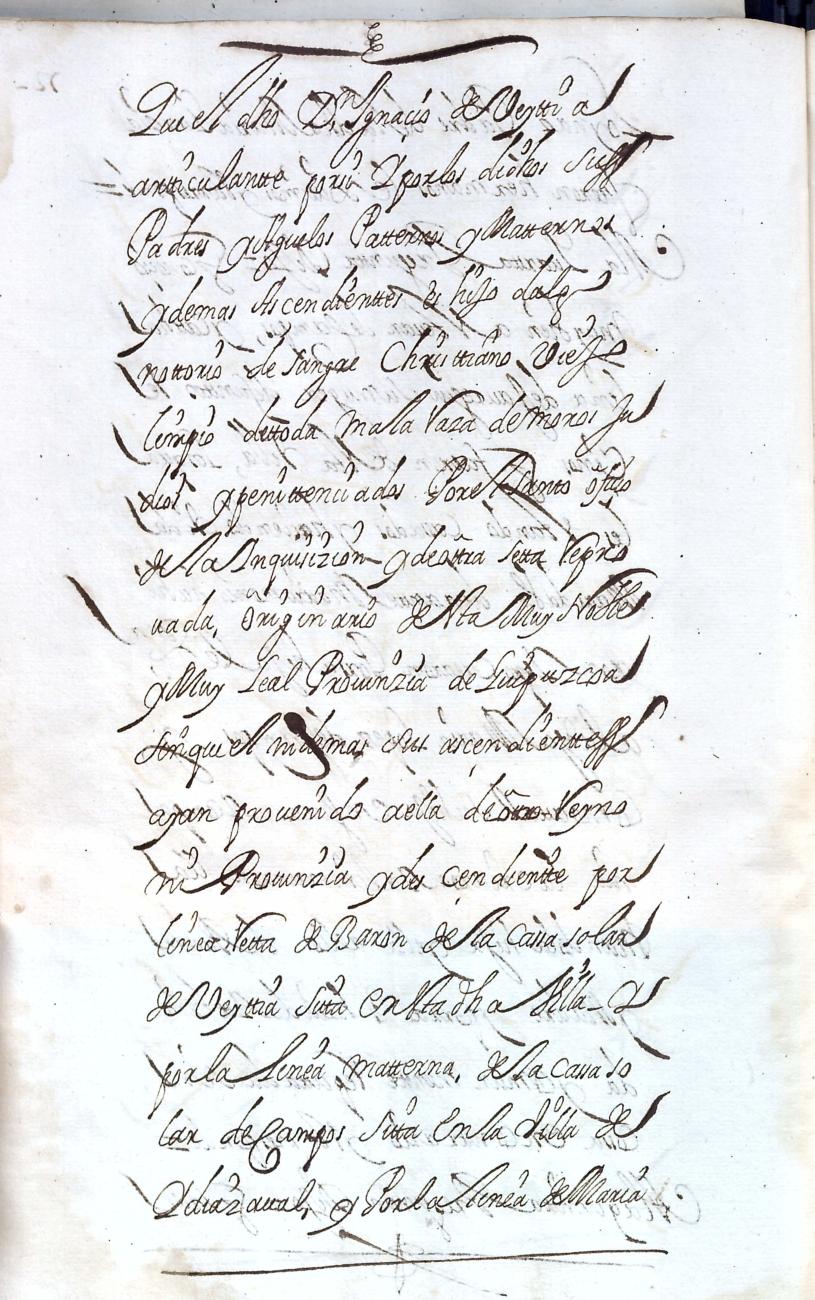 Que el dho Dn Ignacio de Veytia
artticulantte por si y por los dichos sus
Padres y Aguelos Patternos y Matternos
y demas Ascendienttes es hijo dalgo
nottorio de sangre Christtiano Viejo
limpio de ttoda mala Raza de moros Ju
dios y penittenciados Por el Santo ofizio
de la Inquisizion y de ottra setta Repro
uada, originario de Sta Muy Noble
y Muy Leal Prouinzia de Guipuzcoa
sin que el ni demas sus ascendienttes
ayan prouenido a ella de otro Reyno
ni Prouinzia y des cendientte por
linea Retta de Baron de la Cassa solar
de Veyttia sitta en Sta dha Villa y
por la linea matterna, de la cassa so
lar de Campos sitta en la Villa de
Ydiazaual, y Por la linea de Maria